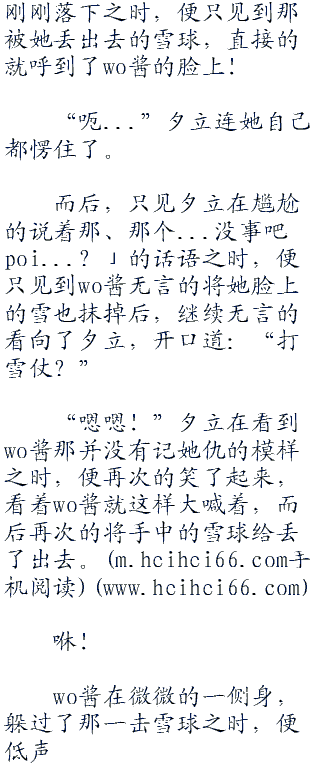 刚刚落下之时，便只见到那
被她丢出去的雪球，直接的
就呼到了wo酱的脸上！
“呃...”夕立连她自己
都愣住了。
而后，只见夕立在尴尬
的说着那、那个...没事吧
poi...？」的话语之时，便
只见到wo酱无言的将她脸上
的雪也抹掉后，继续无言的
看向了夕立，开口道：“打
雪仗？”
“嗯嗯！”夕立在看到
wo酱那并没有记她仇的模样
之时，便再次的笑了起来，
看着wo酱就这样大喊着，而
后再次的将手中的雪球给丢
了出去。(m.hcihci66.com手
机阅读)(www.hcihci66.com)
咻！
wo酱在微微的一侧身，
躲过了那一击雪球之时，便
低声